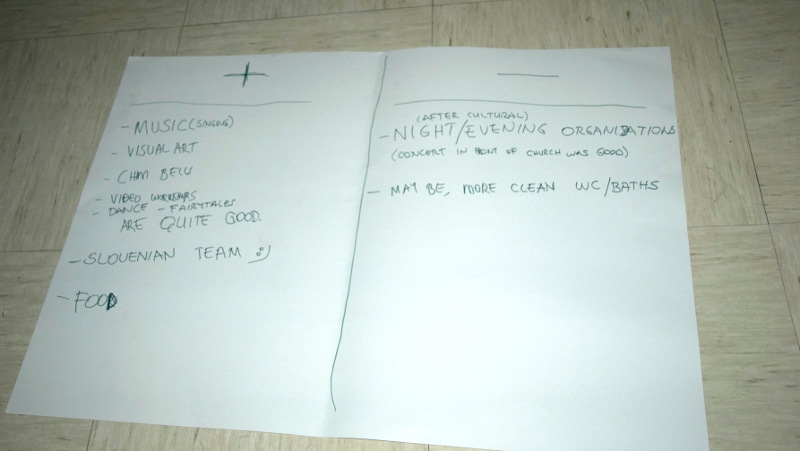 +
- MUSIC (SINGING)
- VISUAL ART
- VIDEO WORKSHOPS
- DANCE - FAIRYTALES
ARE QUITE GOOD.
- SLOVENIAN TEAM :)
- FOOD
—
(AFTER CULTURAL)
- NIGHT/EVENING ORGANISATIONS
(CONCERT IN FRONT OF CHURCH WAS GOOD)
- MAY BE, MORE CLEAN WC/BATHS